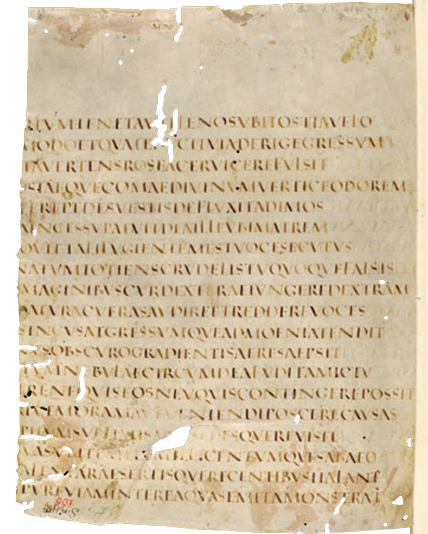 RTVMTENETAVT PLENOSVBITOSTIAVELO
MODOETQVATE DVCITVIADERIGEGRESSVM
TAVERTENSROSEACERVICEREFVLSIT
OSIAEQVECOMAEDIVINVMVERTICEODOREM
VEREPEDESVESTISDEFLVXITADIMOS
AINCESSVPATVITDEAILLEVBIMATREM
OVITTALIFVGIENTEMESTVOCESECVTVS
NATVMTOTIENSCRVDELISTVQVOQVEFALSIS
MAGINIBVSCVRDEXTRAEIVNGEREDEXTRAM
DATVRACVERASAVDIREETREDDEREVOCES
SINCVSATGRESSVMQVEADMOENIATENDIT
NVSOBSCVROGRADIENTISAERESAEPSIT
NEBVLAECIRCVMDEAFVDITAMICTV
RENEQVISEOSNEVQVISCONTINGEREPOSSIT
MORAM VENIENDIPOSCERECAVSAS
SEDESQVEREVISIT
CENTVMQVESABAEO
ARAESERTISQVERECENTIBVSHALANT
PVEREVIAMINTEREAQVASEMITAMONSTRAT